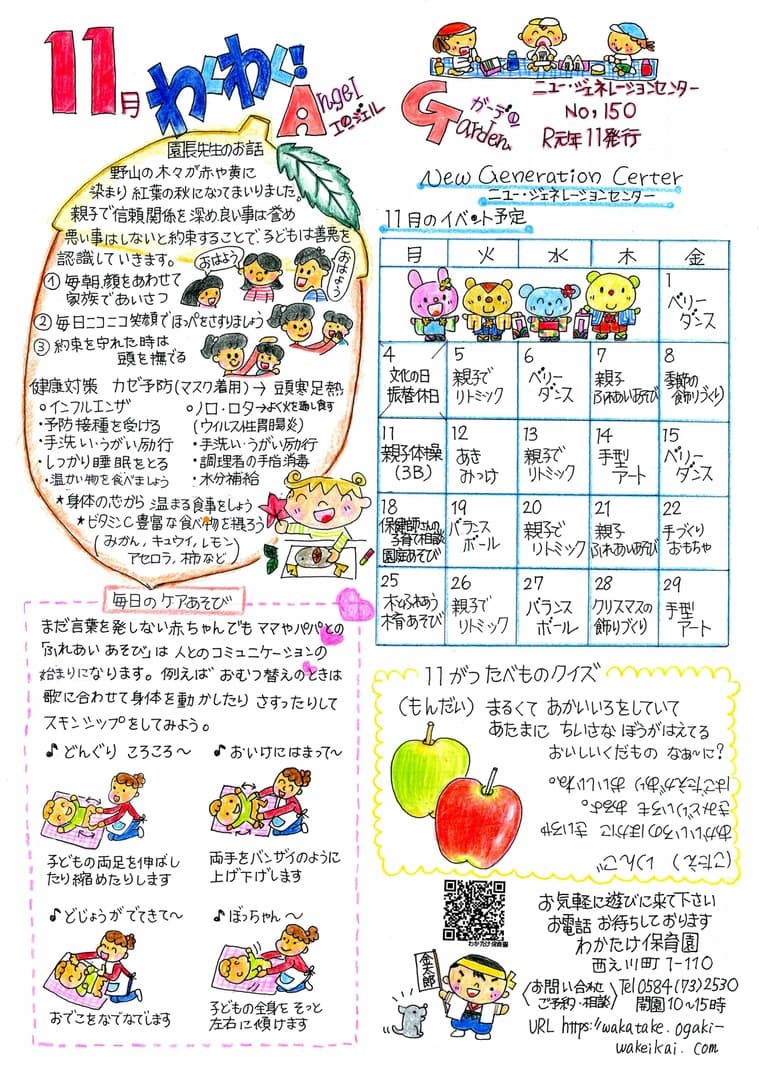 11月 わくわく!
Angel
エンジェル
Garden
ガーデン
ニュー・ジェネレーションセンター
No,150
R元年11発行
園長先生のお話
野山の木々が赤や黄に
染まり 紅葉の秋になってまいりました。
親子で信頼関係を深め良い事は誉め
悪い事はしないと約束することで、子どもは善悪を
認識していきます。
① 毎朝、顔をあわせて
家族であいさつ
おはよう
おはよう
② 毎日ニコニコ笑顔でほっぺをさすりましょう
③ 約束を守れた時は
頭を撫でる
健康対策 カゼ予防(マスク着用)→ 頭寒足熱
○インフルエンザ
・予防接種を受ける
・手洗い・うがい励行
・しっかり睡眠をとる
・温かい物を食べましょう
○ノロ・ロタ→よく火を通し食す
(ウイルス性胃腸炎)
・手洗い・うがい励行
・調理者の手指消毒
・水分補給
★身体の芯から 温まる食事をしよう
★ビタミンC豊富な食べ物を摂ろう
(みかん、キュウイ、レモン
アセロラ、柿など)
New Generation Certer
ニュー・ジェネレーションセンター
11月のイベント予定
月 火 水 木 金
1 ベリーダンス
4 文化の日 振替休日
5 親子でリトミック
6 ベリーダンス
7 親子ふれあいあそび
8 季節の飾りづくり
11 親子体操(3B)
12 あきみっけ
13 親子でリトミック
14 手型アート
15 ベリーダンス
18 保健師さんの子育て相談 園庭あそび
19 バランスボール
20 親子でリトミック
21 親子ふれあいあそび
22 手づくりおもちゃ
25 木とふれあう木育あそび
26 親子でリトミック
27 バランスボール
28 クリスマスの飾りづくり
29 手型アート
毎日のケアあそび
まだ言葉を発しない赤ちゃんでもママやパパとの
「ふれあいあそび」は 人とのコミュニケーションの
始まりになります。例えば おむつ替えのときは
歌に合わせて身体を動かしたり さすったりして
スキンシップをしてみよう。
♪どんぐり ころころ〜
子どもの両足を伸ばし
たり縮めたりします
♪おいけにはまって〜
両手をバンザイのように
上げ下げします
♪どじょうがでてきて〜
おでこをなでなでします
♪ぼっちゃん〜
子どもの全身を そっと
左右に傾けます
11がつ たべものクイズ
(もんだい) まるくて あかいいろをしていて
あたまに ちいさな ぼうがはえてる
おいしいくだもの なぁ〜に?
(こたえ) りんご
あかいいろのほかに きいろや
きみどりいろも あるよ。
はごたえがあり おいしいね。
わかたけ保育園
お気軽に遊びに来て下さい
お電話 お待ちしております
わかたけ保育園
西え川町 1-110
〈お問い合わせ ご予約・相談〉
Tel 0584(73)2530
開園10〜15時
URL https://wakatake.ogaki-
wakeikai.com
金太郎